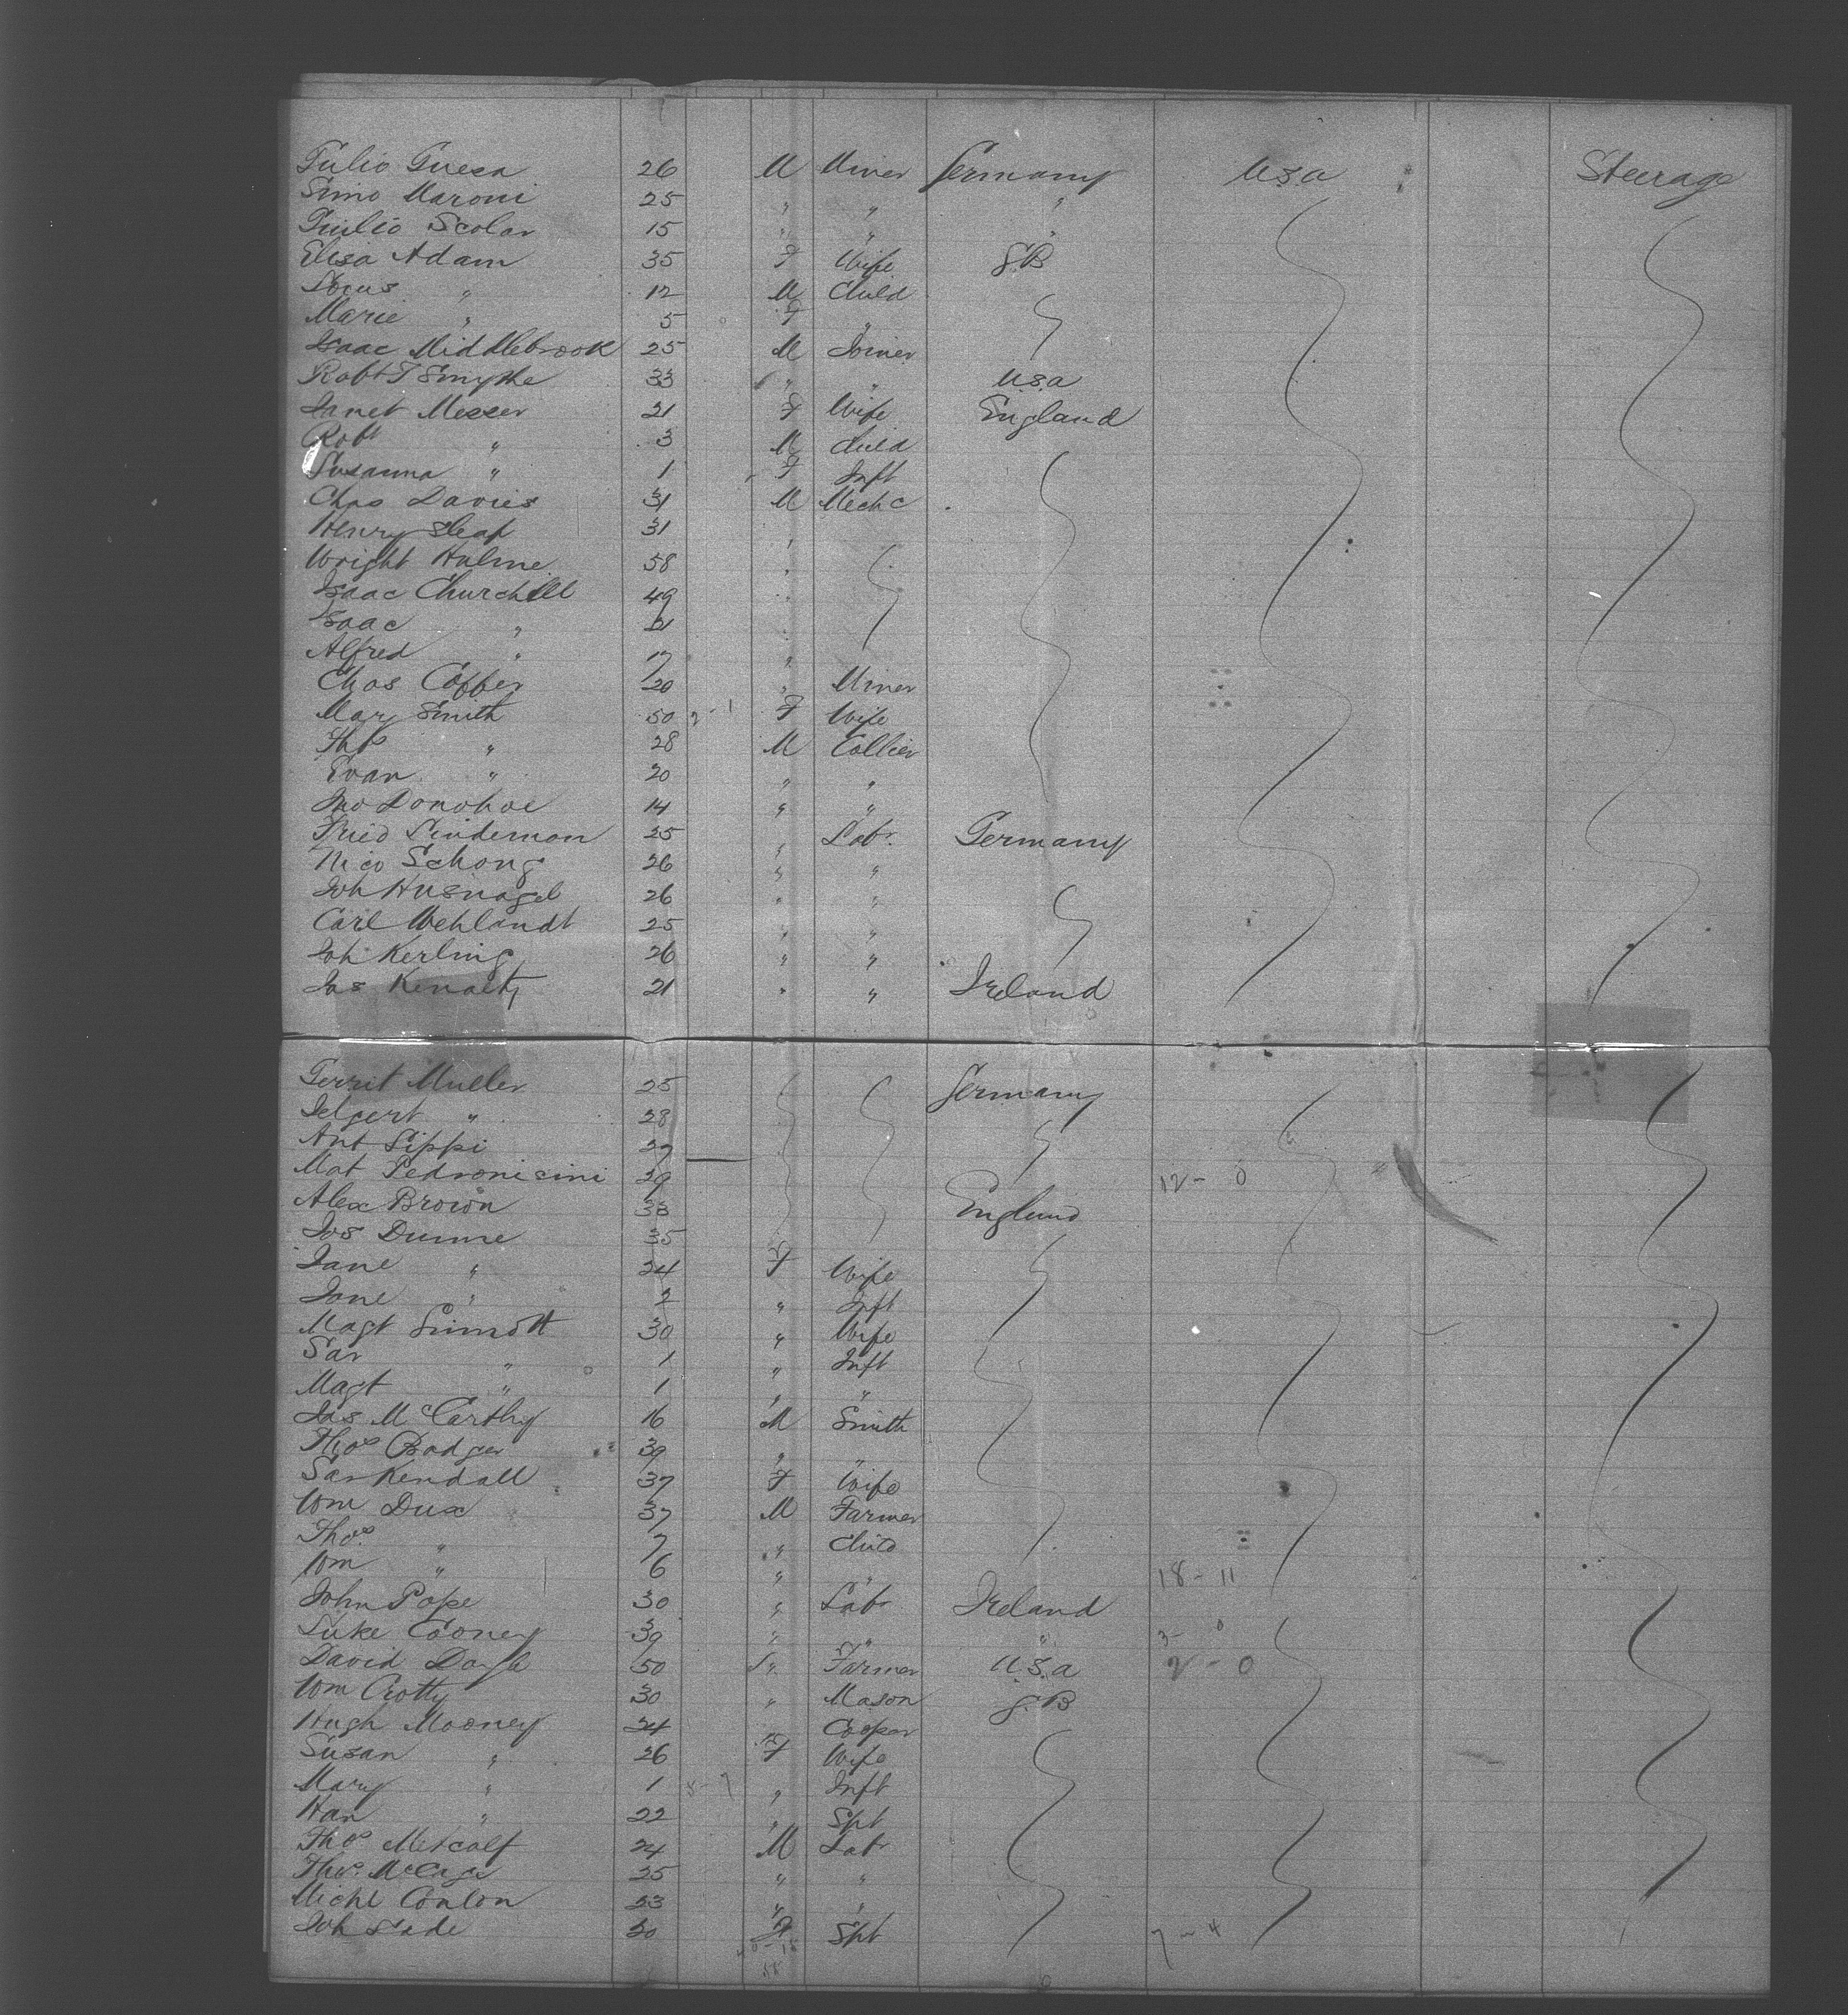 Tulio Guesa 26 M Miner Germany U.S.a Steerage
Simo Maroni 25 " " "
Giulio Scolar 15 " " "
Elisa Adam 35 F Wife G.B
" 12 M Child
Marie " 5 F "
Isaac Middlebrook 25 M Joiner
Robt T Smythe 33 " " U.S.a
Janet Messer 21 F Wife England
Robt " 3 M Child
Susanna " 1 F Inft
Chas Davies 31 M Mechc
Henry Sleap 31 "
Wright Hulme 58 "
Isaac Churchill 49 "
Isaac " 21 "
Alfred " 17 "
Chas Coffer 20 " Miner
Mary Smith 50 2-1 F Wife
Thos " 28 M Collier
Evan " 20 " "
Jno Donohoe 14 " "
Fried Lindeman 25 " Labr. Germany
Nico Schong 26 " "
Joh Husnagel 26 " "
Carl Wehlandt 25 " "
Joh Kerling 26 " "
Jas 21 " " Ireland
Gerrit Muller 25 Germany
" 28
Ant Sippi 27
Mat Pedronicini 29 12 - 0
Alex Brown 33 England
Jos Dunne 35
Jane " 24 F Wife
Jane " 2 " Inft
Magt Sinnott 30 " Wife
Sar " 1 " Inft
Magt " 1 " "
Jas McCarthy 16 M Smith
Thos Badger 39 " "
Sar Kendall 37 F Wife
Wm Dux 37 M Farmer
Thos. " 7 " Child
Wm " 6 " " 18 - 11
John Pope 30 " Labr Ireland
Luke Cooney 39 " " " 3- 0
David Doyle 50 " Farmer U.S.a 2 - 0
Wm Crotty 30 " Mason G.B
Hugh Mooney 24 " Cooper
Susan " 26 F Wife
Mary " 1 " Inft
Han " 22 " Spt
Thos Metcalf 24 M Labr
Thos. 25 " "
Michl Conlon 23 " "
Joh 20 F Spt 7 - 4